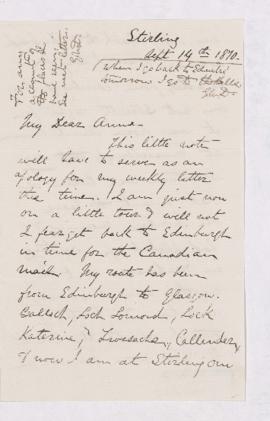 Stirling
Sept 14th 1890.
(When I go back to
tomorrow I go to
For any
account of
the
see next letter.
My Dear Anna.
This little note
will have to serve as an
apology for my weekly letter
this time. I am just now
on a little tour & will not
I fear get back to Edinburgh
in time for the Canadian
mail. My route has been
from Edinburgh to Glasgow.
Balloch, Loch Lomond, Loch
Katerine, Trossachs, Callender,
& now I am at Stirling on